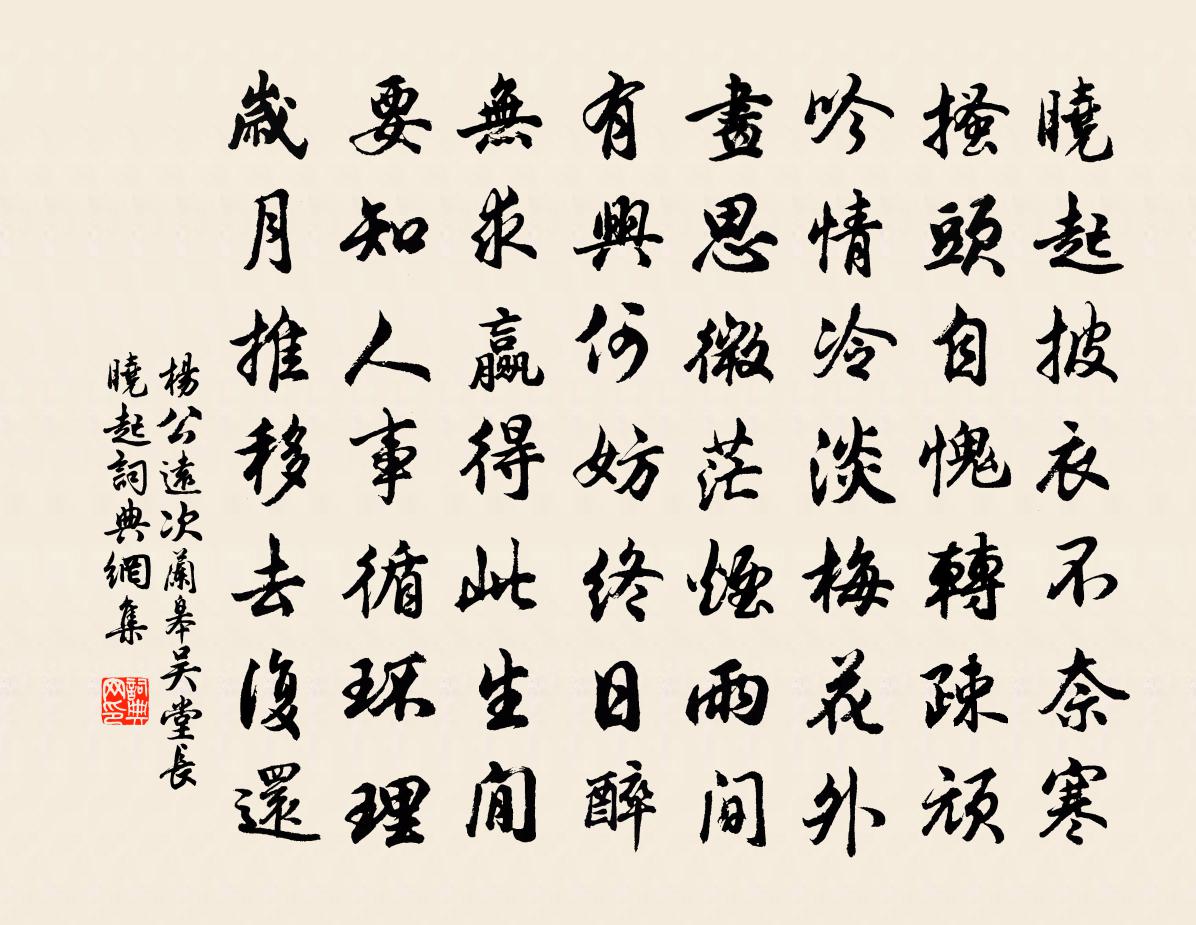 曉起披衣不奈寒
搔頭自愧轉疎頑
吟情冷淡梅花外
畫思微茫煙雨間
有興何妨終日醉
無求贏得此生閒
要知人事循環理
歲月推移去復還
楊公遠次蘭皋吳堂長
曉起詞典網集
詞典
网印